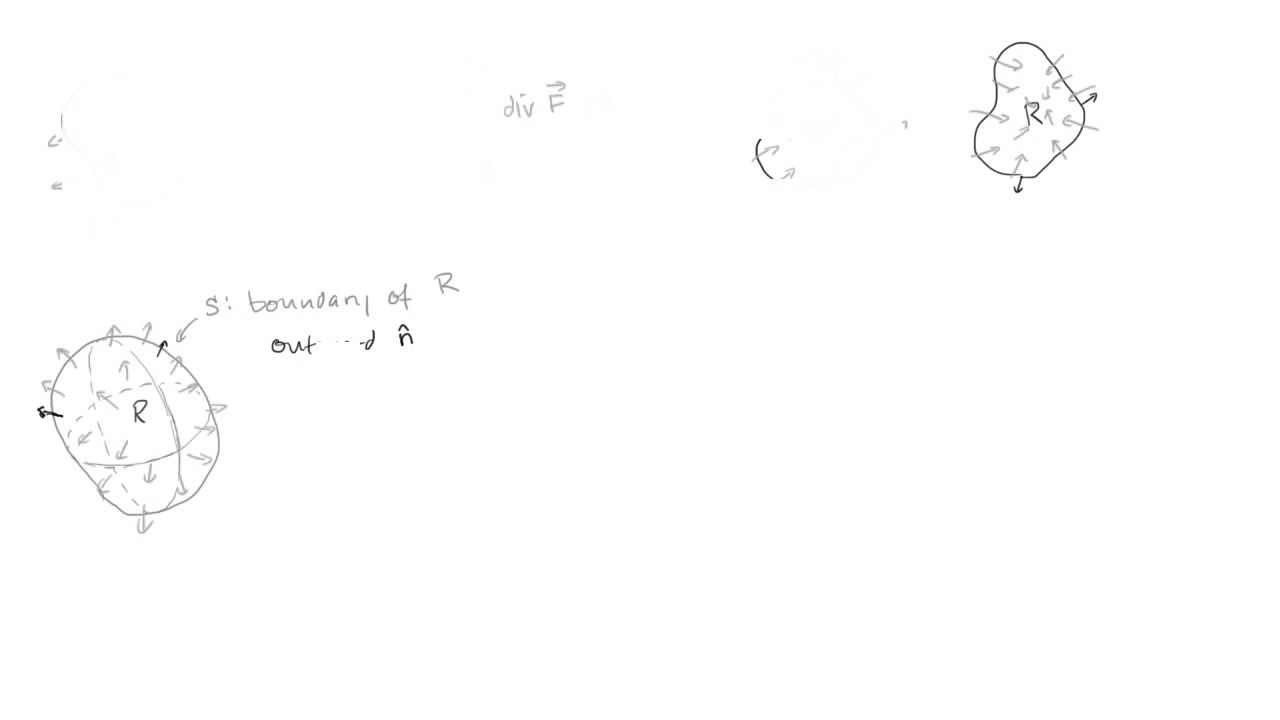 div F⃗
R
S: boundary of R
n̂
R